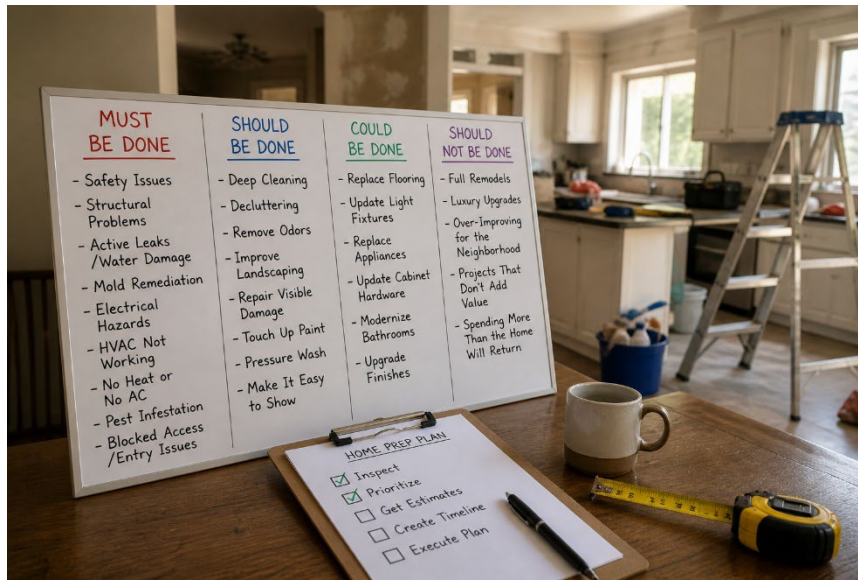 MUST
BE DONE
- Safety Issues
- Structural
Problems
- Active Leaks
/Water Damage
- Mold Remediation
- Electrical
Hazards
- HVAC Not
Working
- No Heat or
No AC
- Pest Infestation
- Blocked Access
/Entry Issues
SHOULD
BE DONE
- Deep Cleaning
- Decluttering
- Remove Odors
- Improve
Landscaping
- Repair Visible
Damage
- Touch Up Paint
- Pressure Wash
- Make It Easy
to Show
COULD
BE DONE
- Replace Flooring
- Update Light
Fixtures
- Replace
Appliances
- Update Cabinet
Hardware
- Modernize
Bathrooms
- Upgrade
Finishes
SHOULD
NOT BE DONE
- Full Remodels
- Luxury Upgrades
- Over-Improving
for the
Neighborhood
- Projects That
Don't Add
Value
- Spending More
Than the Home
Will Return
HOME PREP PLAN
Inspect
Prioritize
Get Estimates
Create Timeline
Execute Plan